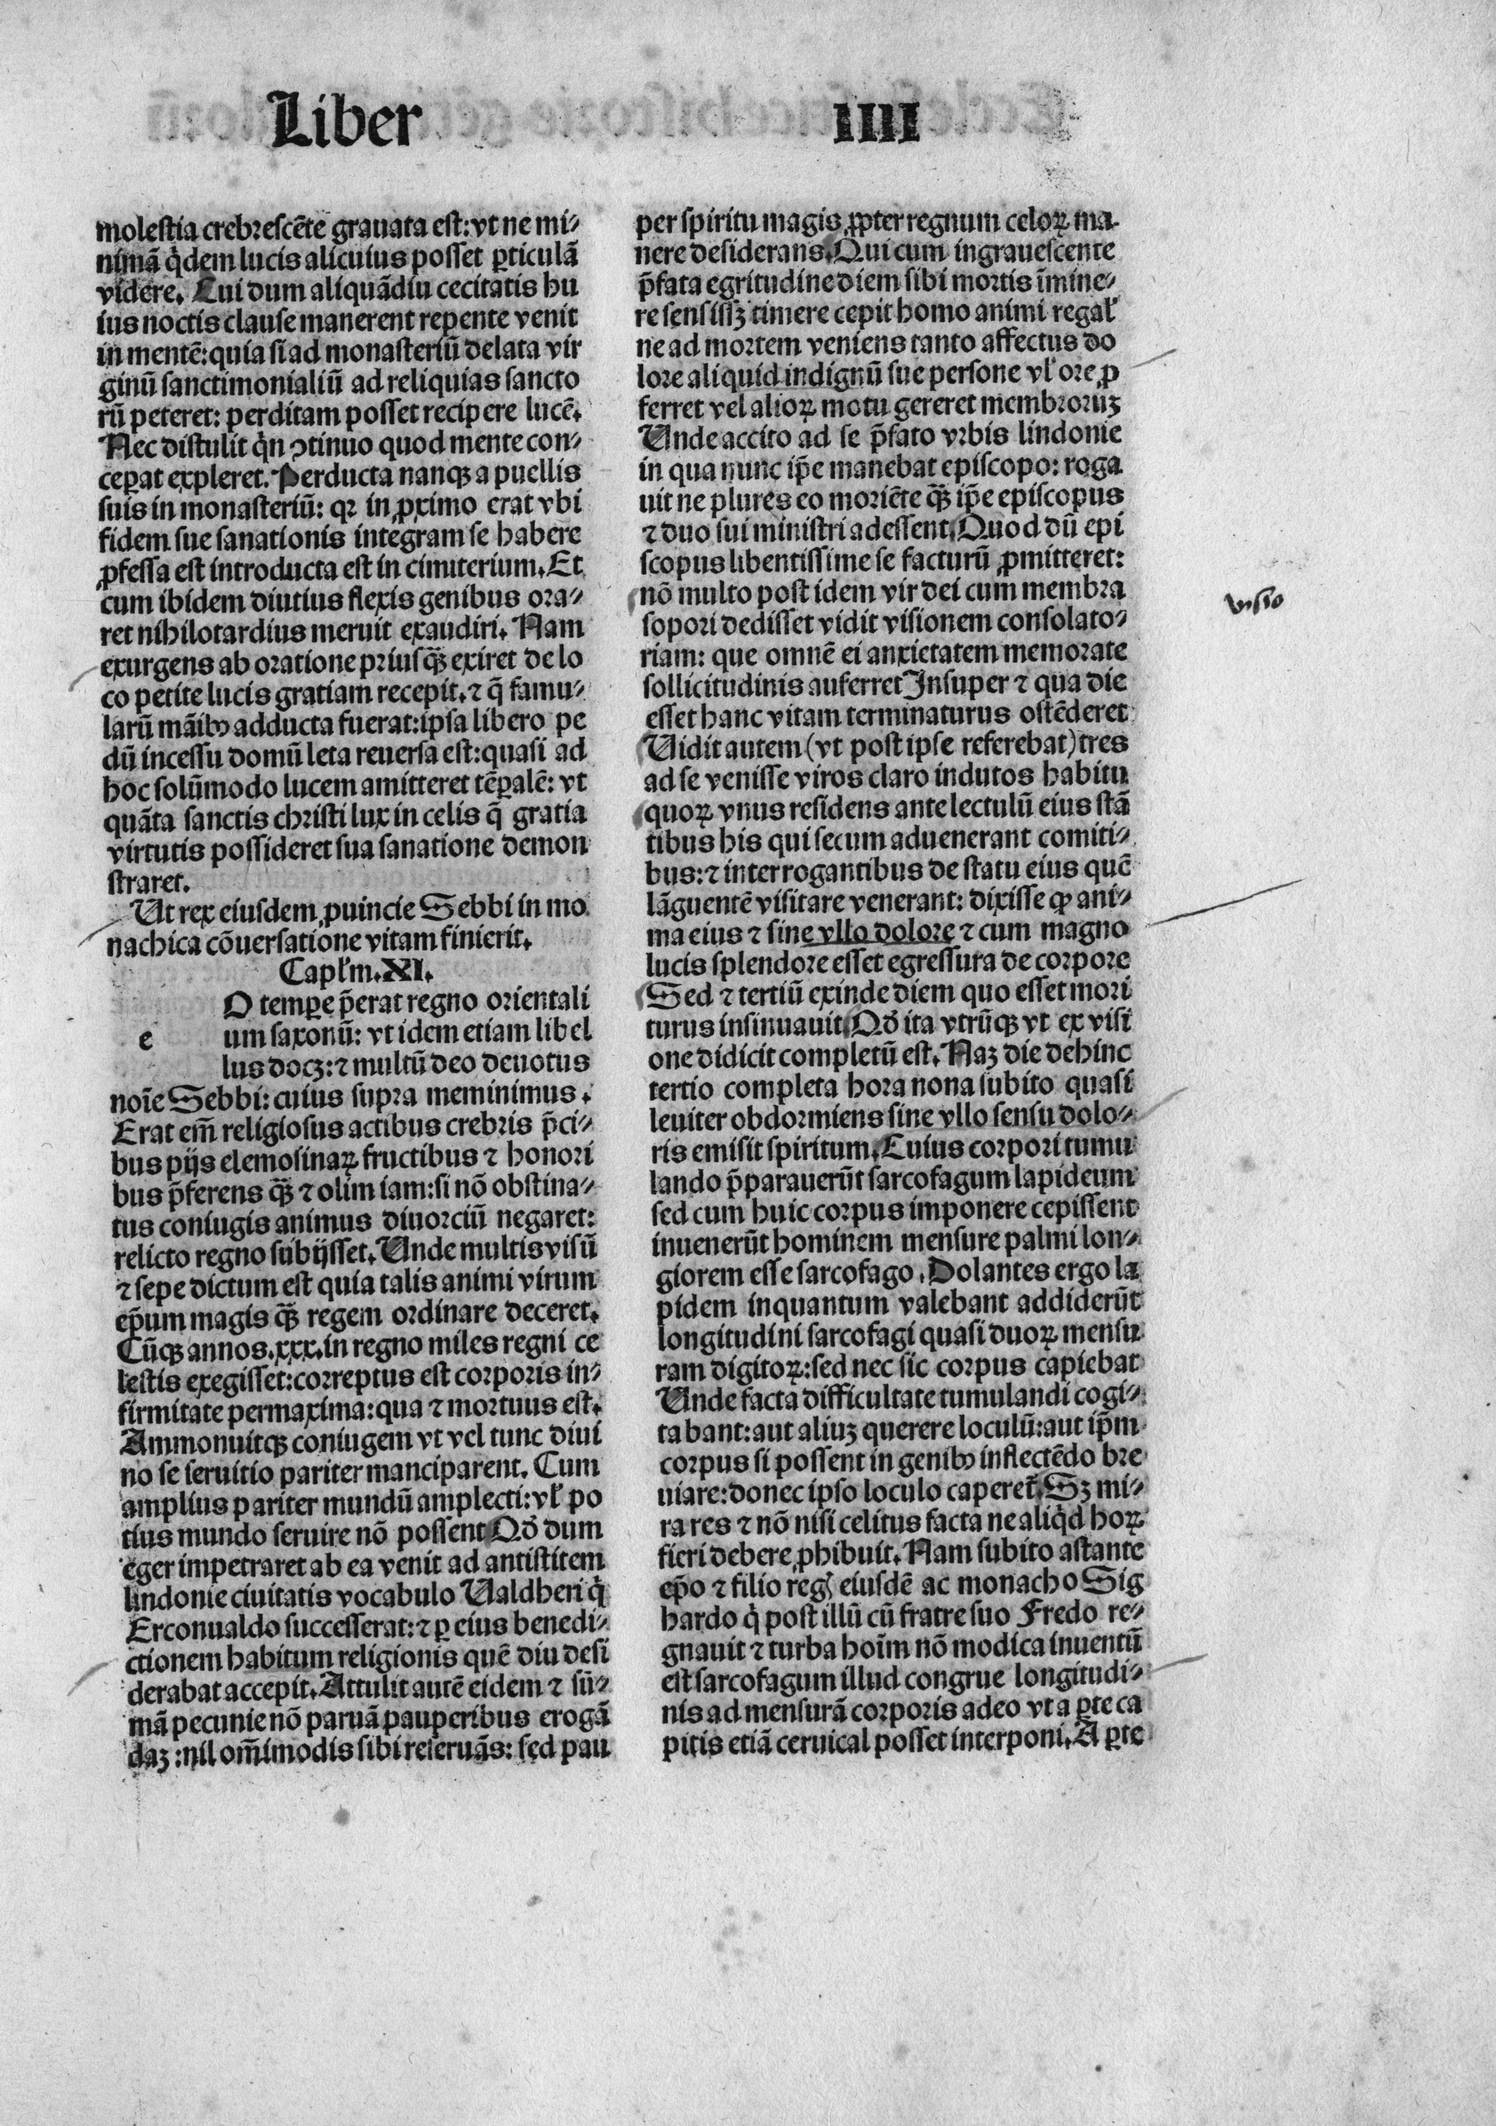 Liber IIII
molestia crebrescēte grauata est: vt ne mi-
nimā q̇dem lucis alicuius posset ꝑticulā
videre. Cui dum aliquādiu cecitatis hu
ius noctis clause manerent repente venit
in mentē: quia si ad monasteriū delata vir
ginū sanctimonialiū ad reliquias sancto
rū peteret: perditam posset recipere lucē.
Nec distulit q̇n ꝯtinuo quod mente con-
ceꝑat expleret. Perducta nanqꝫ a puellis
suis in monasteriū: qꝛ in ꝓximo erat vbi
fidem sue sanationis integram se habere
ꝓfessa est introducta est in cimiterium. Et
cum ibidem diutius flexis genibus ora-
ret nihilotardius meruit exaudiri. Nam
exurgens ab oratione priusqꝫ̄ exiret de lo
co petite lucis gratiam recepit. ⁊ q̄ famu-
larū māibꝰ adducta fuerat: ipsa libero pe
dū incessu domū leta reuersa est: quasi ad
hoc solūmodo lucem amitteret tēꝑalē: vt
quāta sanctis christi lux in celis q̄ gratia
virtutis possideret sua sanatione demon
straret.
Ut rex eiusdem ꝓuincie Sebbi in mo
nachica cōuersatione vitam finierit.
Capl̓m. XI.
O temꝑe p̄erat regno orientali
e um saxonū: vt idem etiam libel
lus docꝫ: ⁊ multū deo deuotus
noīe Sebbi: cuius supra meminimus.
Erat em̄ religiosus actibus crebris p̄ci-
bus pijs elemosinaꝝ fructibus ⁊ honori
bus p̄ferens qꝫ̄ ⁊ olim iam: si nō obstina-
tus coniugis animus diuorciū negaret:
relicto regno subijsset. Unde multis visū
⁊ sepe dictum est quia talis animi virum
ep̄um magis qꝫ̄ regem ordinare deceret.
Cūqꝫ annos. xxx. in regno miles regni ce
lestis exegisset: correptus est corporis in-
firmitate permaxima: qua ⁊ mortuus est.
Ammonuitqꝫ coniugem vt vel tunc diui
no se seruitio pariter manciparent. Cum
amplius pariter mundū amplecti: vl̓ po
tius mundo seruire nō possent Qđ dum
eger impetraret ab ea venit ad antistitem
lindonie ciuitatis vocabulo Ualdheri q̇
Erconualdo successerat: ⁊ ꝑ eius benedi-
ctionem habitum religionis quē diu desi
derabat accepit. Attulit autē eidem ⁊ sū-
mā pecunie nō paruā pauperibus erogā
daꝫ: nil om̄imodis sibi reseruās: sed pau
per spiritu magis ꝓpter regnum celoꝝ ma-
nere desiderans. Qui cum ingrauescente
p̄fata egritudine diem sibi mortis īmine-
re sensissꝫ timere cepit homo animi regal̓
ne ad mortem veniens tanto affectus do
lore aliquid indignū sue persone vl̓ ore ꝓ
ferret vel alioꝝ motu gereret membroruꝫ
Unde accito ad se p̄fato vrbis lindonie
in qua nunc ip̄e manebat episcopo: roga
uit ne plures eo moriēte qꝫ̄ ip̄e episcopus
⁊ duo sui ministri adessent. Quod dū epi
scopus libentissime se facturū ꝓmitteret:
nō multo post idem vir dei cum membra
sopori dedisset vidit visionem consolato-
riam: que omnē ei anxietatem memorate
sollicitudinis auferret Insuper ⁊ qua die
esset hanc vitam terminaturus ostēderet
Uidit autem (vt post ipse referebat) tres
ad se venisse viros claro indutos habitu
quoꝝ vnus residens ante lectulū eius stā
tibus his qui secum aduenerant comiti-
bus: ⁊ interrogantibus de statu eius quē
lāguentē visitare venerant: dixisse ꝙ ani-
ma eius ⁊ sine vllo dolore ⁊ cum magno
lucis splendore esset egressura de corpore
Sed ⁊ tertiū exinde diem quo esset mori
turus insinuauit. Qđ ita vtrūqꝫ vt ex visi
one didicit completū est. Naꝫ die dehinc
tertio completa hora nona subito quasi
leuiter obdormiens sine vllo sensu dolo-
ris emisit spiritum. Cuius corpori tumu
lando p̄parauerūt sarcofagum lapideum
sed cum huic corpus imponere cepissent
inuenerūt hominem mensure palmi lon-
giorem esse sarcofago. Dolantes ergo la
pidem inquantum valebant addiderūt
longitudini sarcofagi quasi duoꝝ mensu
ram digitoꝝ: sed nec sic corpus capiebat
Unde facta difficultate tumulandi cogi-
tabant: aut aliuꝫ querere loculū: aut ip̄m
corpus si possent in genibꝰ inflectēdo bre
uiare: donec ipso loculo caperet̄. Sꝫ mi-
ra res ⁊ nō nisi celitus facta ne aliq̇d hoꝝ
fieri debere ꝓhibuit. Nam subito astante
ep̄o ⁊ filio reg̓ eiusdē ac monacho Sig
hardo q̇ post illū cū fratre suo Fredo re-
gnauit ⁊ turba hoīm nō modica inuentū
est sarcofagum illud congrue longitudi-
nis ad mensurā corporis adeo vt a ꝑte ca
pitis etiā ceruical posset interponi. A ꝑte
visio